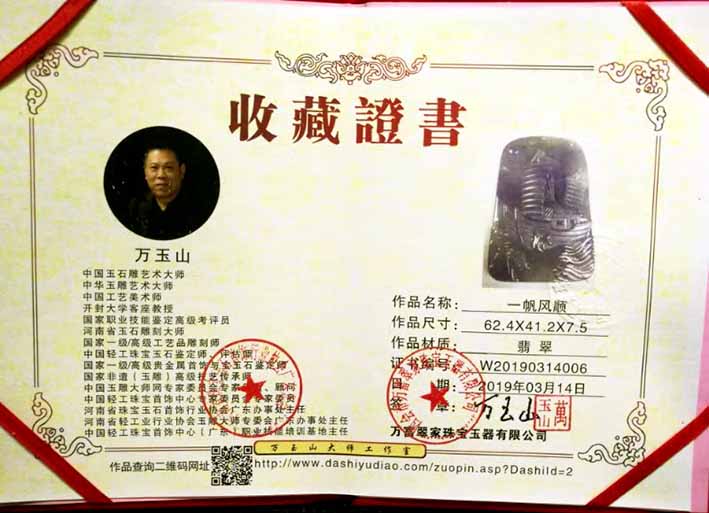 收藏證書
万玉山
中国玉石雕艺术大师
中华玉雕艺术大师
中国工艺美术师
开封大学客座教授
国家职业技能鉴定高级考评员
河南省玉石雕刻大师
国家一级/高级工艺品雕刻师
中国轻工珠宝玉石鉴定师、评估师
国家一级/高级贵金属首饰与宝玉石鉴定师
国家非遗（玉雕）高级技艺传承师
中国玉雕大师网专家委员会专家 、顾问
中国轻工珠宝首饰中心专家委员会专家委员
河南省珠宝玉石首饰行业协会广东办事处主任
河南省轻工业行业协会玉雕大师专委会广东办事处主任
中国轻工珠宝首饰中心（广东）职业技能培训基地主任
作品名称: 一帆风顺
作品尺寸: 62.4X41.2X7.5
作品材质: 翡翠
证书编号: W20190314006
日 期: 2019年03月14日
签 章: 万玉山
萬玉山
珠宝玉器有限公司
万玉山大师工作室
作品查询二维码网址
http://www.dashiyudiao.com/zuopin.asp?DashiId=2